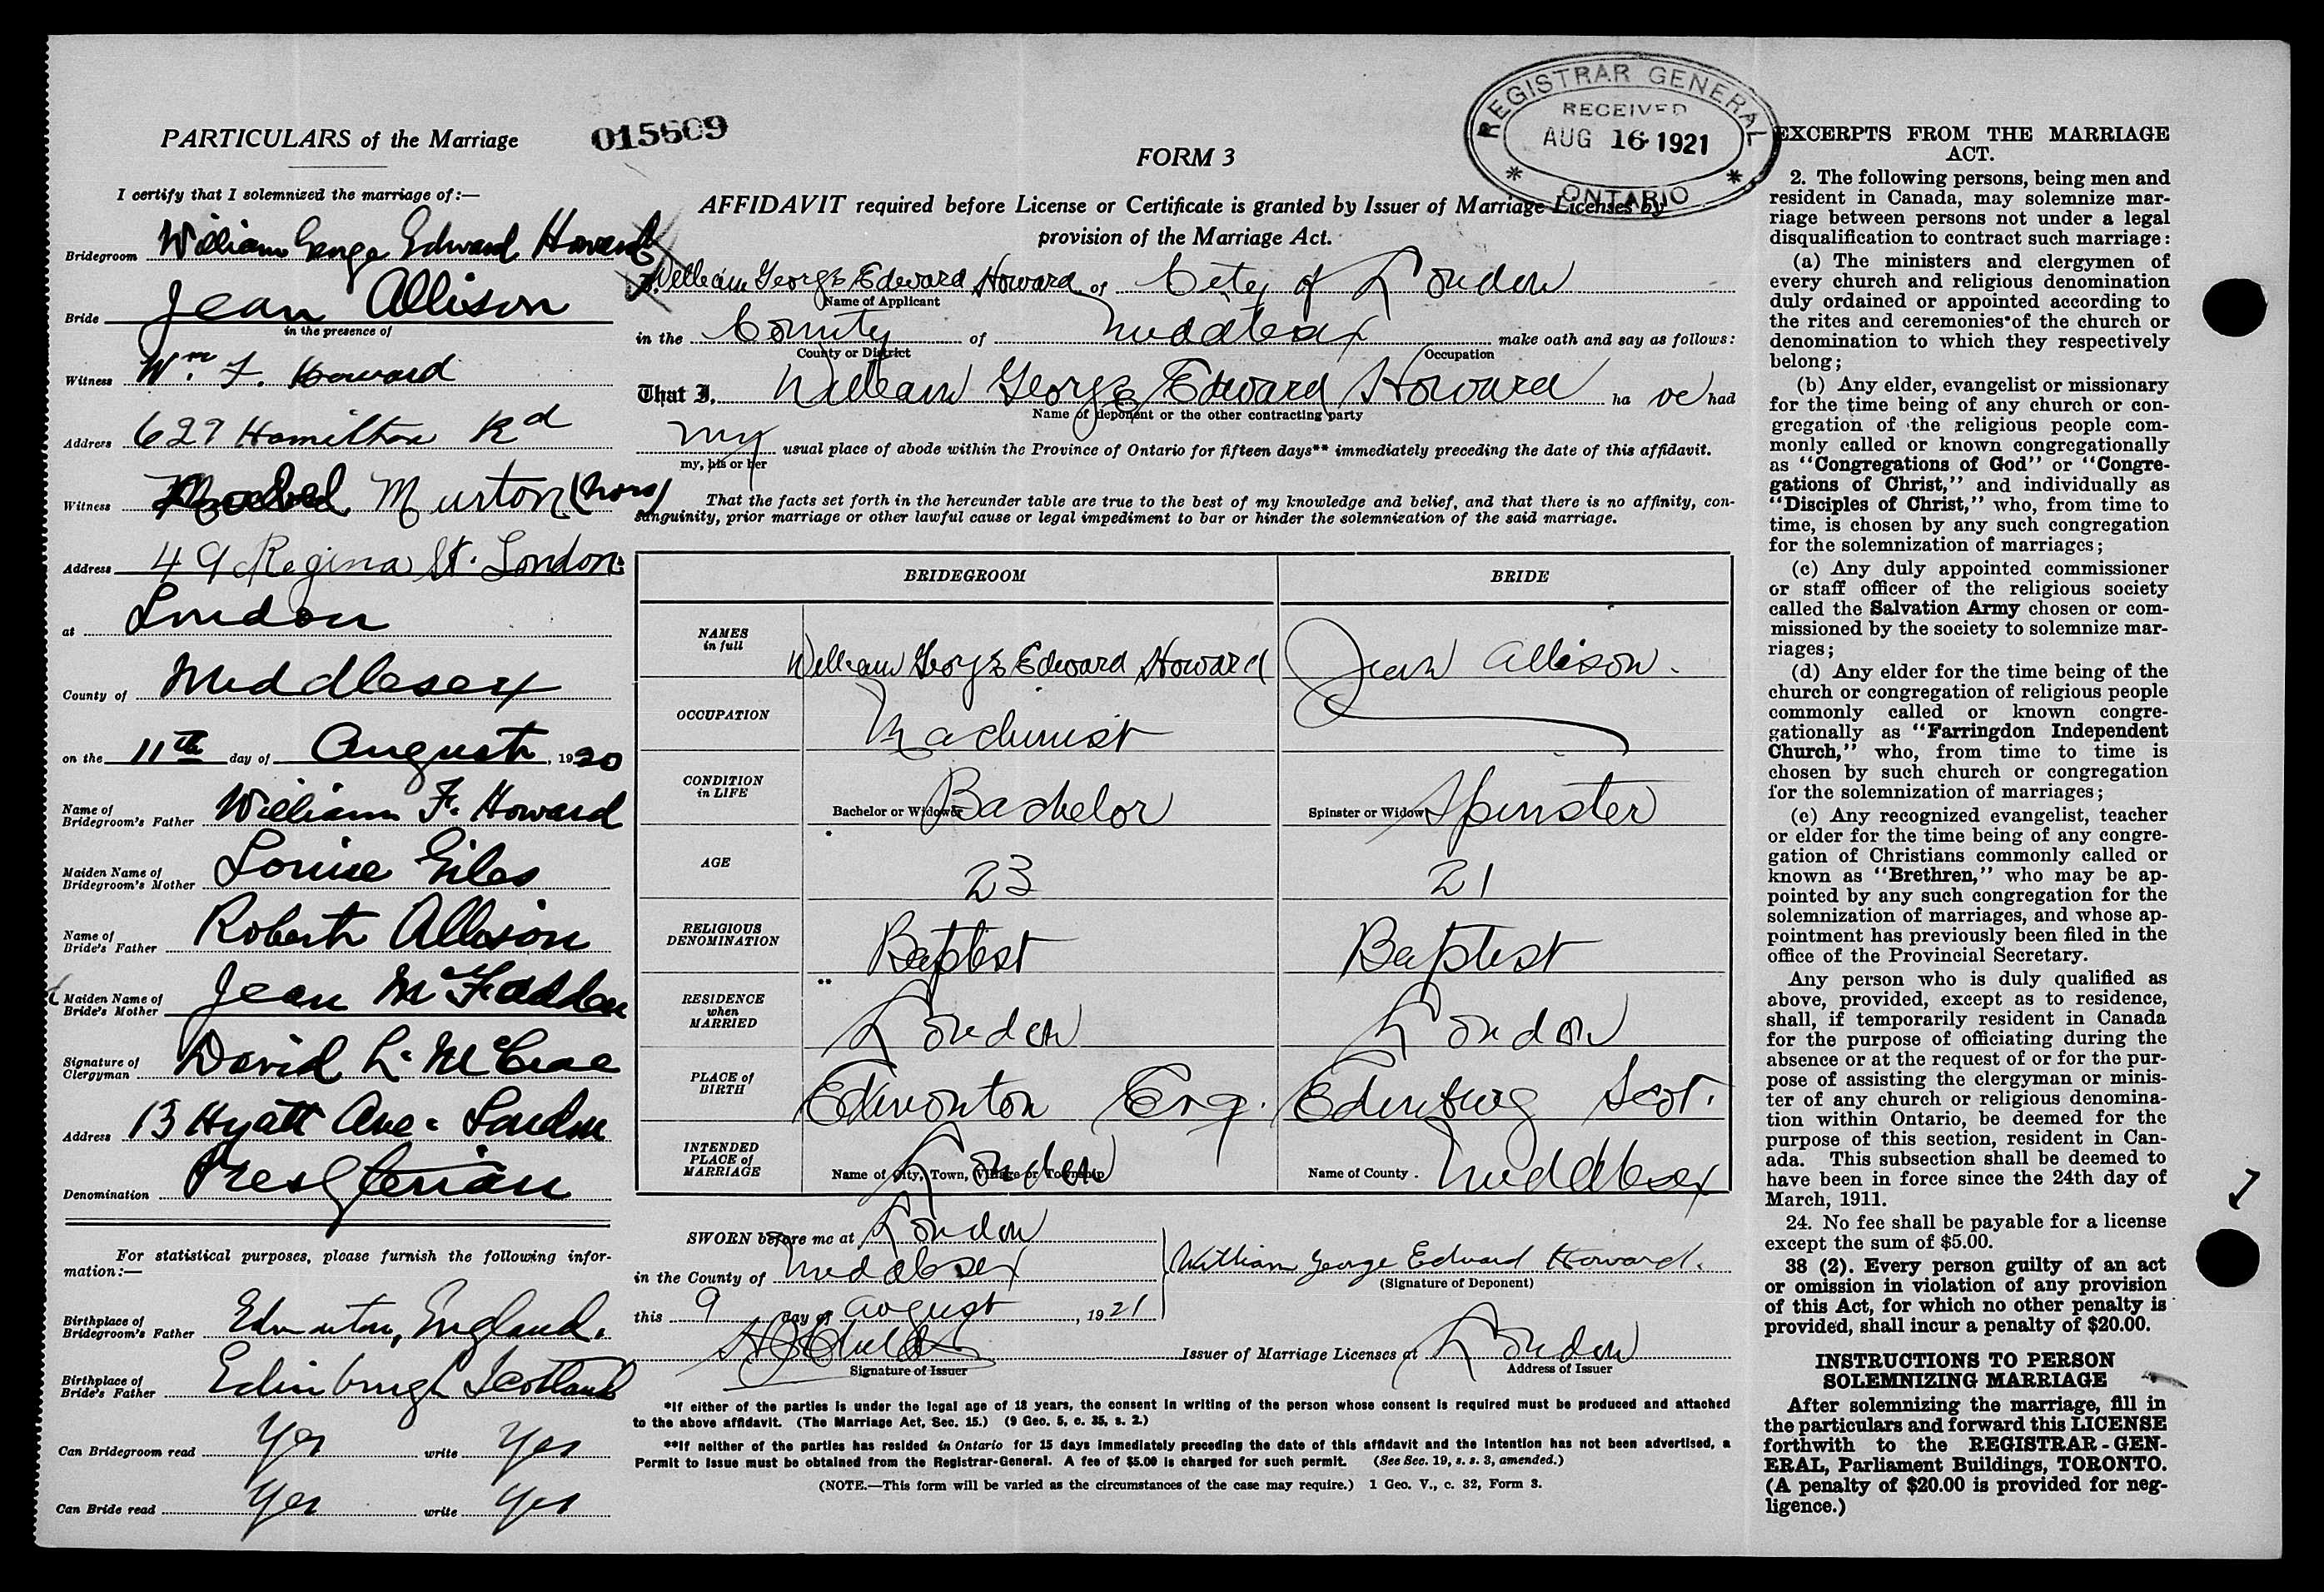 PARTICULARS of the Marriage
015609
I certify that I solemnized the marriage of:—
Bridegroom William George Edward Howard
Bride Jean Allison
in the presence of
Witness Wm. F. Howard
Address 627 Hamilton Rd
Witness Murton (Mrs)
Address 49 Regina St. London.
at London
County of Middlesex
on the 11th day of August, 1920
Name of
Bridegroom's Father William F. Howard
Maiden Name of
Bridegroom's Mother Louise Giles
Name of
Bride's Father Robert Allison
Maiden Name of
Bride's Mother Jean McFadden
Signature of
Clergyman David L. McCrae
Address 13 Hyatt Ave. London
Denomination Presbyterian
For statistical purposes, please furnish the following infor-
mation:—
Birthplace of
Bridegroom's Father Edmonton, England.
Birthplace of
Bride's Father Edinburgh Scotland
Can Bridegroom read Yes write Yes
Can Bride read Yes write Yes
REGISTRAR GENERAL
RECEIVED
AUG 16 1921
* ONTARIO *
FORM 3
AFFIDAVIT required before License or Certificate is granted by Issuer of Marriage Licenses by
provision of the Marriage Act.
I, William George Edward Howard of City of London
Name of Applicant
in the County of Middlesex make oath and say as follows:
County or District Occupation
That I, William George Edward Howard ha ve had
Name of deponent or the other contracting party
my usual place of abode within the Province of Ontario for fifteen days** immediately preceding the date of this affidavit.
my, his or her
That the facts set forth in the hereunder table are true to the best of my knowledge and belief, and that there is no affinity, con-
sanguinity, prior marriage or other lawful cause or legal impediment to bar or hinder the solemnization of the said marriage.
BRIDEGROOM BRIDE
NAMES
in full William George Edward Howard Jean Allison.
OCCUPATION Machinist
CONDITION
in LIFE Bachelor or Widower Bachelor Spinster or Widow Spinster
AGE 23 21
RELIGIOUS
DENOMINATION Baptist Baptist
RESIDENCE
when
MARRIED London London
PLACE of
BIRTH Edmonton Eng. Edinburg Scot.
INTENDED
PLACE of
MARRIAGE Name of City, Town, Village or Township London Name of County. Middlesex
SWORN before me at London
in the County of Middlesex
this 9 day of August, 1921
William George Edward Howard.
(Signature of Deponent)
Issuer of Marriage Licenses at London
Signature of Issuer Address of Issuer
*If either of the parties is under the legal age of 18 years, the consent in writing of the person whose consent is required must be produced and attached
to the above affidavit. (The Marriage Act, Sec. 15.) (9 Geo. 5, c. 35, s. 2.)
**If neither of the parties has resided in Ontario for 15 days immediately preceding the date of this affidavit and the intention has not been advertised, a
Permit to issue must be obtained from the Registrar-General. A fee of $5.00 is charged for such permit. (See Sec. 19, s. s. 3, amended.)
(NOTE.—This form will be varied as the circumstances of the case may require.) 1 Geo. V., c. 32, Form 3.
EXCERPTS FROM THE MARRIAGE
ACT.
2. The following persons, being men and
resident in Canada, may solemnize mar-
riage between persons not under a legal
disqualification to contract such marriage:
(a) The ministers and clergymen of
every church and religious denomination
duly ordained or appointed according to
the rites and ceremonies of the church or
denomination to which they respectively
belong;
(b) Any elder, evangelist or missionary
for the time being of any church or con-
gregation of the religious people com-
monly called or known congregationally
as "Congregations of God" or "Congre-
gations of Christ," and individually as
"Disciples of Christ," who, from time to
time, is chosen by any such congregation
for the solemnization of marriages;
(c) Any duly appointed commissioner
or staff officer of the religious society
called the Salvation Army chosen or com-
missioned by the society to solemnize mar-
riages;
(d) Any elder for the time being of the
church or congregation of religious people
commonly called or known congre-
gationally as "Farringdon Independent
Church," who, from time to time is
chosen by such church or congregation
for the solemnization of marriages;
(e) Any recognized evangelist, teacher
or elder for the time being of any congre-
gation of Christians commonly called or
known as "Brethren," who may be ap-
pointed by any such congregation for the
solemnization of marriages, and whose ap-
pointment has previously been filed in the
office of the Provincial Secretary.
Any person who is duly qualified as
above, provided, except as to residence,
shall, if temporarily resident in Canada
for the purpose of officiating during the
absence or at the request of or for the pur-
pose of assisting the clergyman or minis-
ter of any church or religious denomina-
tion within Ontario, be deemed for the
purpose of this section, resident in Can-
ada. This subsection shall be deemed to
have been in force since the 24th day of
March, 1911.
24. No fee shall be payable for a license
except the sum of $5.00.
38 (2). Every person guilty of an act
or omission in violation of any provision
of this Act, for which no other penalty is
provided, shall incur a penalty of $20.00.
INSTRUCTIONS TO PERSON
SOLEMNIZING MARRIAGE
After solemnizing the marriage, fill in
the particulars and forward this LICENSE
forthwith to the REGISTRAR-GEN-
ERAL, Parliament Buildings, TORONTO.
(A penalty of $20.00 is provided for neg-
ligence.)